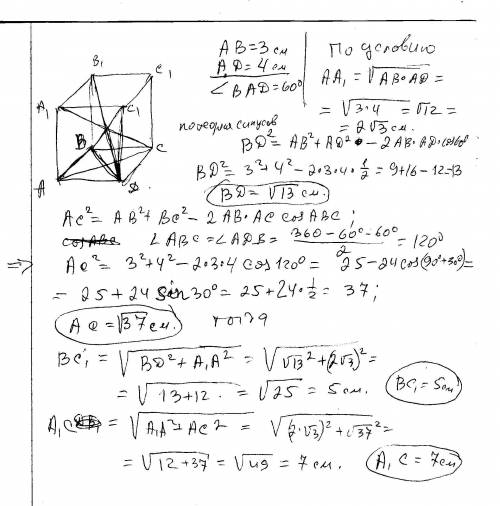 B₁
C₁
A₁
C₁
B
C
A
D
AB = 3 см
AD = 4 см
∠BAD = 60°
По условию
AA₁ = √AB·AD =
= √3·4 = √12 =
= 2√3 см.
по теореме синусов
BD² = AB² + AD² - 2AB·AD·cos60°
BD² = 3² + 4² - 2·3·4·1/2 = 9+16-12=13
BD = √13 см.
AC² = AB² + BC² - 2AB·AC cosABC;
cosABC ∠ABC = ∠ADB = (360 - 60° - 60°)/2 = 120°
⇒ AC² = 3² + 4² - 2·3·4 cos120° = 25 - 24cos(90°+30°) =
= 25 + 24 sin30° = 25 + 24·1/2 = 37;
AC = √37 см. тогда
BC₁ = √BD² + A₁A² = √√13² + (2√3)² =
= √13 + 12 = √25 = 5 см. BC₁ = 5 см
A₁C = √A₁A² + AC² = √(2·√3)² + √37² =
= √12 + 37 = √49 = 7 см. A₁C = 7 см